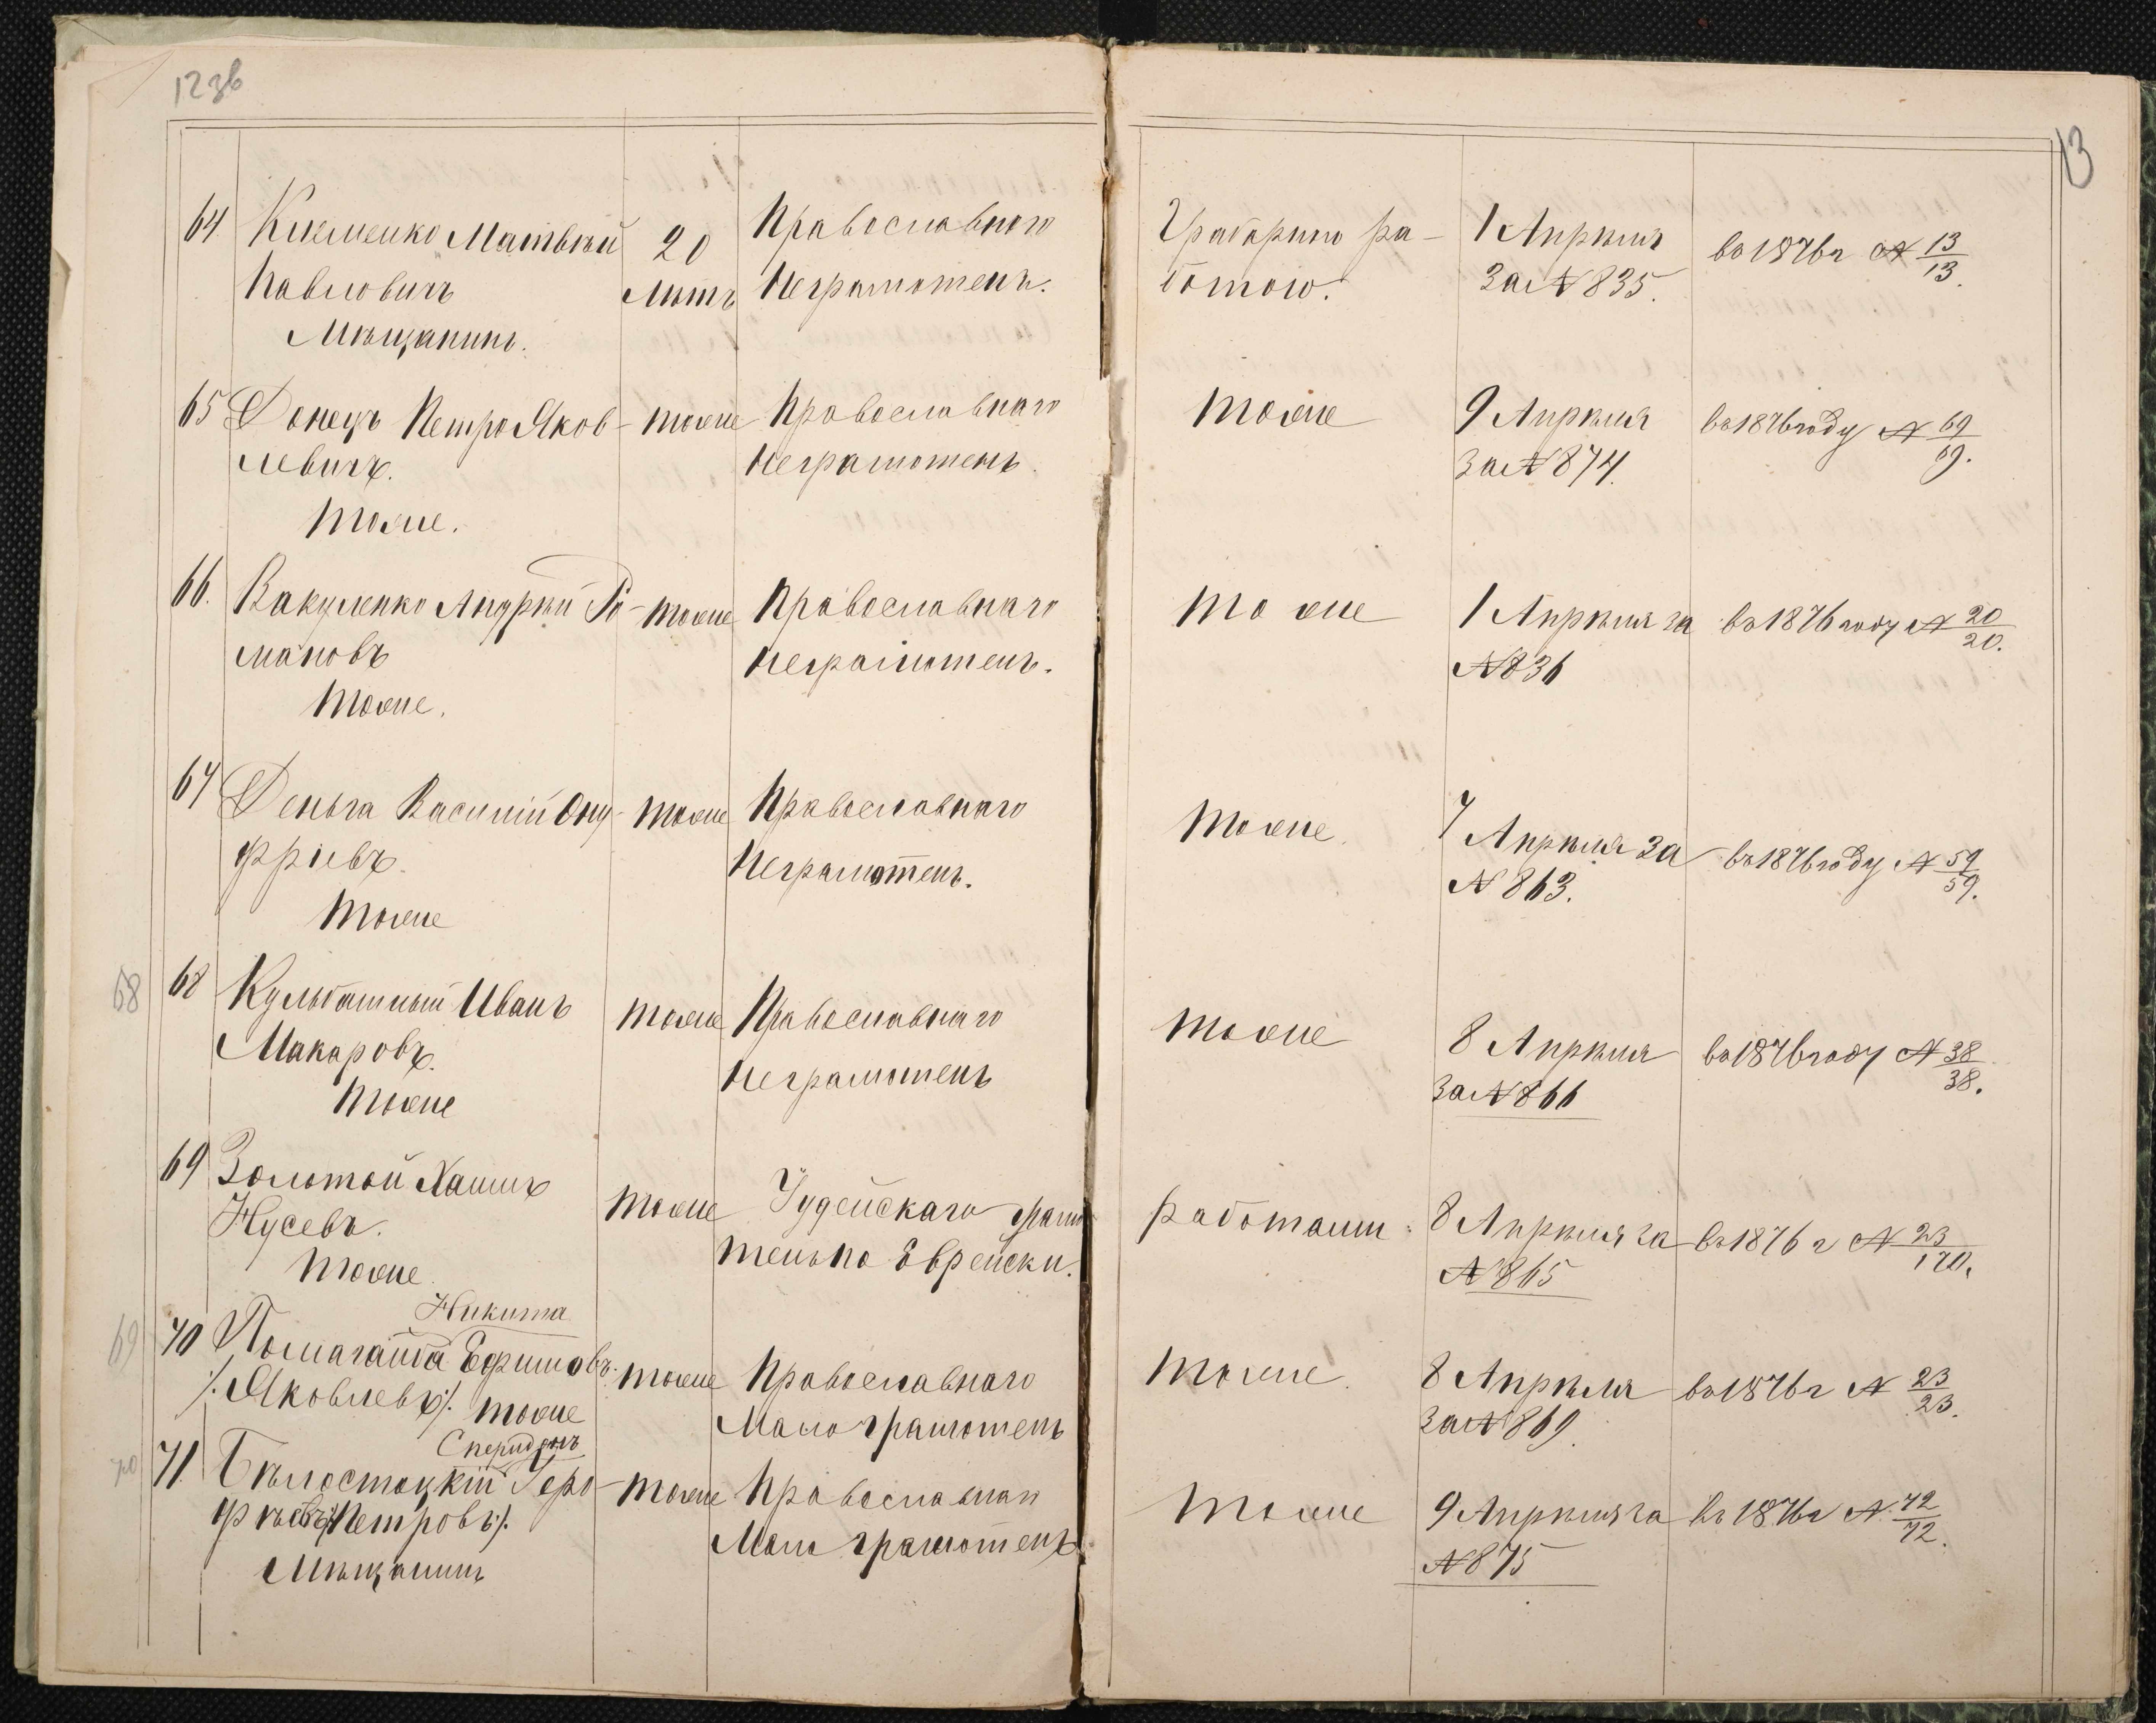 12зв
13
64 Клеменко Матвѣй 20 Православнаго Грабарною ра- 1 Апрѣля въ 1876 г № 13/13.
Павловичъ лѣтъ Неграмотенъ. ботою. За № 835.
Мѣщанинъ.
65 Донецъ Петро Яков- тоже Православнаго тоже 9 Апрѣля въ 1876 году № 69/69.
левичъ. неграмотенъ. За № 874.
тоже.
66. Вакуленко Андрѣй Ро- тоже Православнаго тоже 1 Апрѣля за въ 1876 году № 20/20.
мановъ неграмотенъ. № 836
тоже.
67 Деньга Василій Ону- тоже Православнаго тоже. 7 Апрѣля За въ 1876 году № 59/59.
фріевъ. Неграмотенъ. № 863.
тоже
68 68 Кульбашный Иванъ тоже Православнаго тоже 8 Апрѣля въ 1876 году № 38/38.
Макаровъ. Неграмотенъ За № 866
тоже
69 Золотой Хаимъ тоже Іудейскаго грамо Работаш 8 Апрѣля за въ 1876 г № 23/170.
Нусевъ. тенъ по Еврейски. № 865
тоже
Никита
69 70 Помагайба Ефимовъ тоже Православнаго тоже. 8 Апрѣля въ 1876 г № 23/23.
/. Яковлевъ /. тоже Мало грамотенъ За № 869.
Сперидонъ
70 71. Бѣлостоцкій Геро- тоже Православнаго тоже 9 Апрѣля за въ 1876 г № 72/72.
фѣевъ /. Петровъ /. Мало грамотенъ № 875
Мѣщанинъ